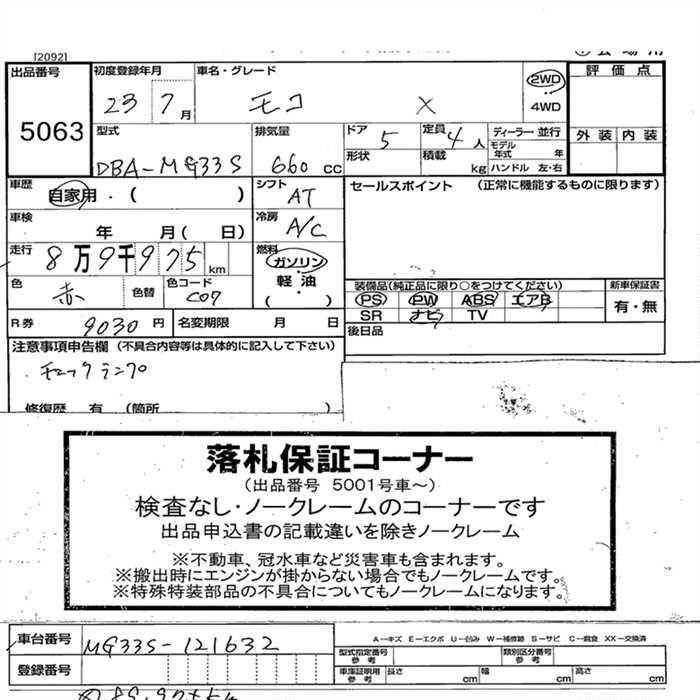 [20921
出品番号 5063
初度登録年月 23 7月
車名・グレード モコ X
2WD
4WD
評価点
外装 内装
型式 DBA-MG33S
排気量 660 cc
ドア 5
定員 4人
形状
積載 kg
ディーラー・並行
モデル年式 年
ハンドル 左・右
車歴 自家用・( )
シフト AT
セールスポイント (正常に機能するものに限ります)
車検 年 月( 日)
冷房 A/C
走行 8万9千975 km
燃料 ガソリン・軽油 ( )
色 赤
色替
色コード C07
装備品(純正品に限り○をつけてください)
PS PW ABS エアB
SR ナビ TV
新車保証書 有・無
R券 9030 円
名変期限 月 日
後日品
注意事項申告欄 (不具合内容等は具体的に記入して下さい)
チェックランプ
修復歴 有 (箇所
落札保証コーナー
(出品番号 5001号車~)
検査なし・ノークレームのコーナーです
出品申込書の記載違いを除きノークレーム
※不動車、冠水車など災害車も含まれます。
※搬出時にエンジンが掛からない場合でもノークレームです。
※特殊特装部品の不具合についてもノークレームになります。
車台番号 MG33S-121632
A-キズ E-エクボ U-凹み W-補修跡 S-サビ C-腐食 XX-交換済
登録番号
型式指定番号 参考
類別区分番号 参考
車庫証明用 参考 長さ cm 幅 cm 高さ cm